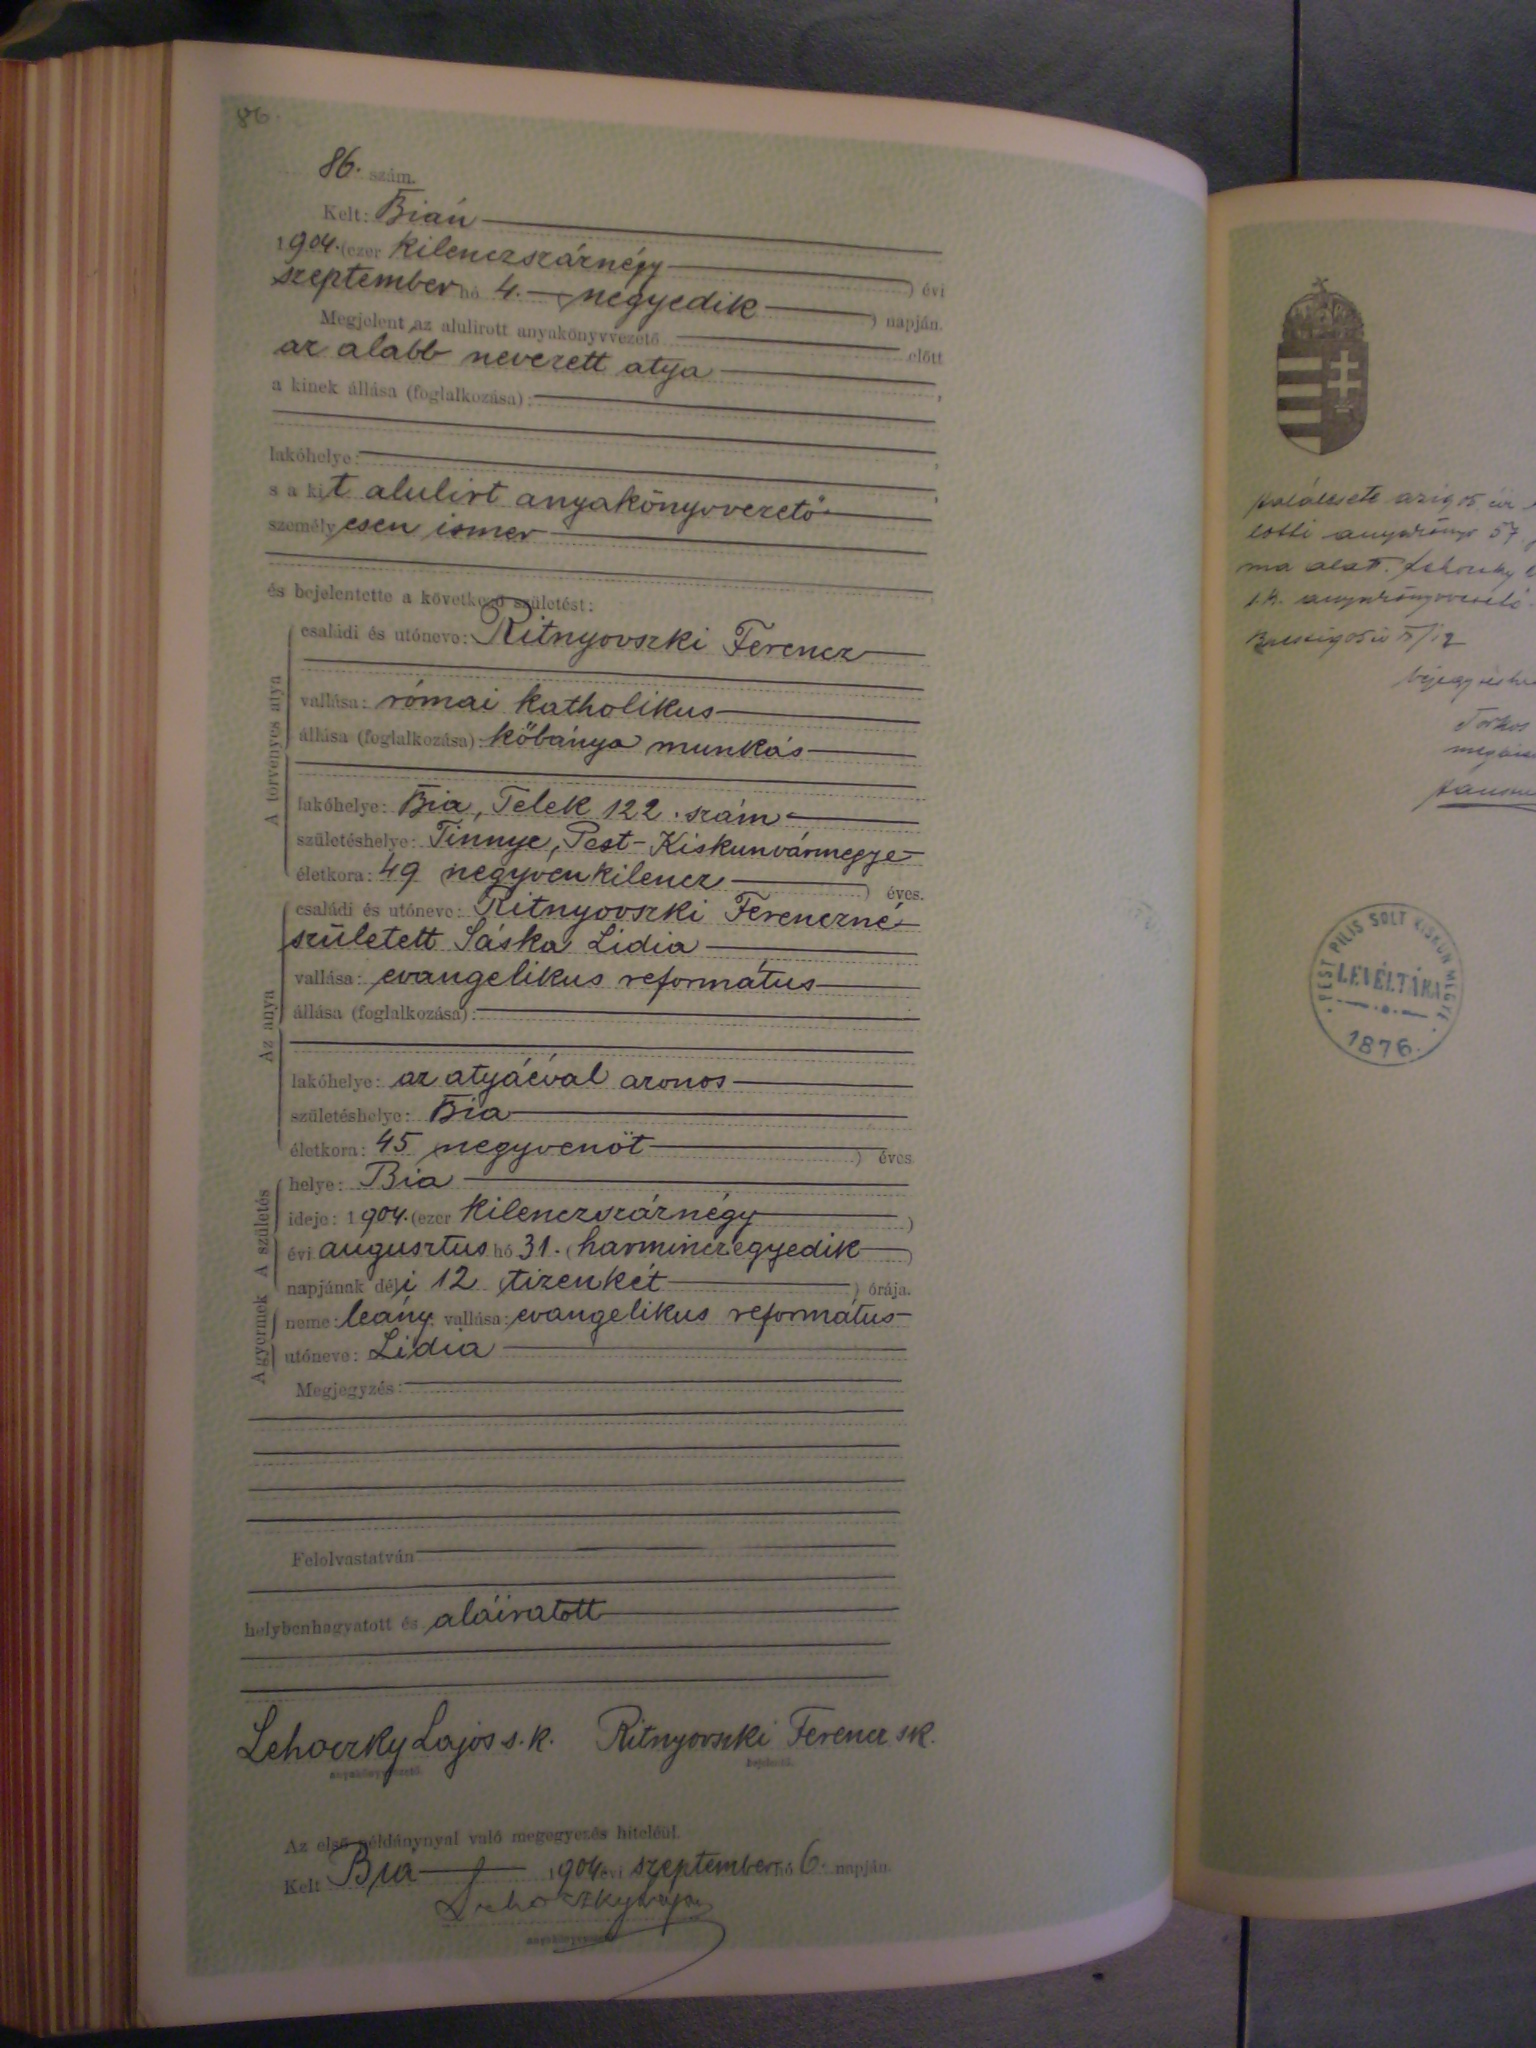 86.
86. szám.
Kelt: Bián
1904. (ezer kilenczszáznégy ) évi
szeptember hó 4. (negyedik ) napján.
Megjelent az alulirott anyakönyvvezető előtt
az alább nevezett atya
a kinek állása (foglalkozása):
lakóhelye:
s a kit alulirt anyakönyvvezető
személyesen ismer
és bejelentette a következő születést:
A törvényes atya
családi és utóneve: Ritnyovszki Ferencz
vallása: római katholikus
állása (foglalkozása): kőbánya munkás
lakóhelye: Bia, Telek 122. szám
születéshelye: Tinnye, Pest-Kiskunvármegye
életkora: 49 (negyvenkilencz ) éves.
Az anya
családi és utóneve: Ritnyovszki Ferenczné
született Sáska Lidia
vallása: evangelikus református
állása (foglalkozása):
lakóhelye: az atyáéval azonos
születéshelye: Bia
életkora: 45 (negyvenöt ) éves
A születés
helye: Bia
ideje: 1904. (ezer kilenczszáznégy )
évi augusztus hó 31. (harminczegyedik )
napjának déli 12 (tizenkét ) órája.
A gyermek
neme: leány vallása: evangelikus református
utóneve: Lidia
Megjegyzés:
Felolvastatván
helybenhagyatott és aláiratott
Lehoczky Lajos s.k. Ritnyovszki Ferencz sk.
anyakönyvvezető. bejelentő.
Az első példánynyal való megegyezés hiteléül.
Kelt Bia 1904 évi szeptember hó 6. napján
Lehoczky Lajos
anyakönyvvezető
anyakönyv 57
ma alatt. Lehoczky
s.k. anyakönyvvezető
PEST PILIS SOLT KISKUN MEGYE
LEVÉLTÁRA
1876.